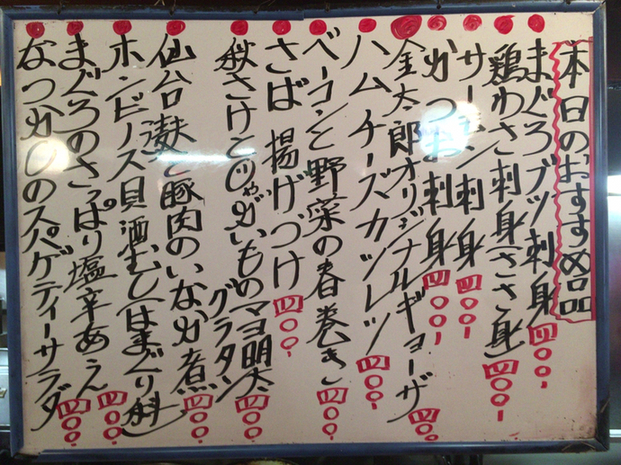 本日のおすすめ品
まぐろブツ刺身 四〇〇、
鶏わさ刺身(ささ身) 四〇〇、
サーモン刺身 四〇〇、
かつお刺身 四〇〇、
金太郎オリジナルギョーザ 四〇〇、
ハムチーズカツレツ 四〇〇、
ベーコンと野菜の春巻き 四〇〇、
さば 揚げづけ 四〇〇、
秋さけとじゃがいものマヨ明太
グラタン 四〇〇、
仙台麩と豚肉のいなか煮 四〇〇、
ホンビノス貝酒むし(はまぐり科) 四〇〇、
まぐろのさっぱり塩辛あえ 四〇〇、
なつかしのスパゲティーサラダ 四〇〇、